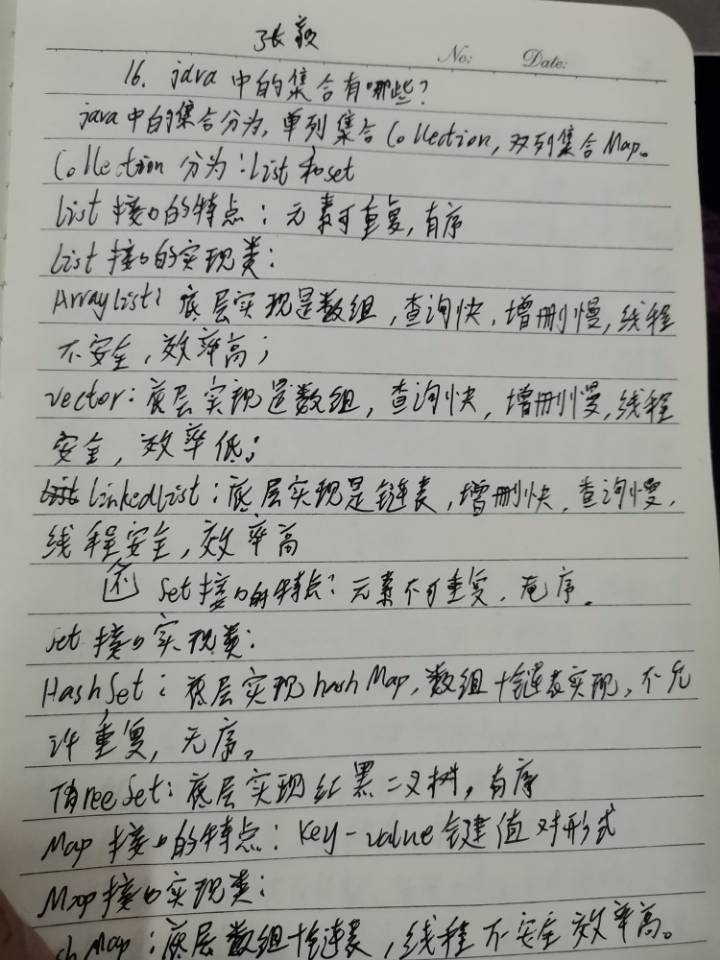 张颖
No: Date:
16. java 中的集合有哪些?
java中的集合分为,单列集合Collection,双列集合Map。
Collection 分为:List和set
List 接口的特点:元素可重复,有序
List 接口的实现类:
ArrayList:底层实现是数组,查询快,增删慢,线程
不安全,效率高;
vector:底层实现是数组,查询快,增删慢,线程
安全,效率低;
LinkedList:底层实现是链表,增删快,查询慢,
线程安全,效率高
还 set接口的特点:元素不可重复,无序。
set 接口实现类:
HashSet:底层实现hashMap,数组+链表实现,不允
许重复,无序。
TreeSet:底层实现红黑二叉树,有序
Map 接口的特点:Key-value键值对形式
Map接口实现类:
shMap:底层数组+链表,线程不安全效率高。